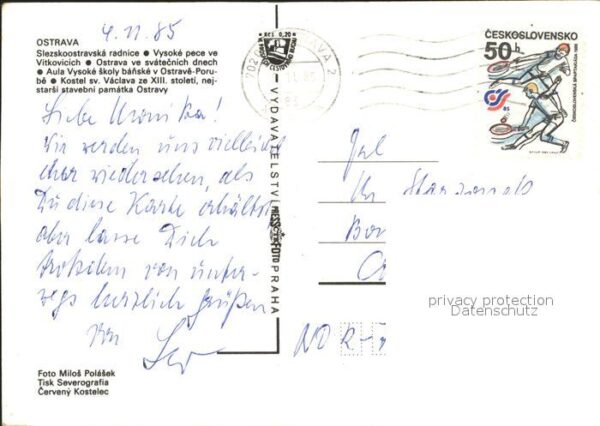 4.11.85
OSTRAVA
Slezskoostravská radnice ● Vysoké pece ve
Vítkovicích ● Ostrava ve svátečních dnech
● Aula Vysoké školy báňské v Ostravě-Poru-
bě ● Kostel sv. Václava ze XIII. století, nej-
starší stavební památka Ostravy
Liebe Monika!
Wir werden uns vielleicht
eher wiedersehen, als
Du diese Karte erhältst
aber lasse Dich
trotzdem von unter-
wegs herzlich grüßen
von
Foto Miloš Polášek
Tisk Severografia
Červený Kostelec
VYDAVATELSTVÍ PRESSFOTO PRAHA
Kčs 0,20
OSTRAVA 2
ČESKOSLOVENSKO
50 h
ČESKOSLOVENSKÁ SPARTAKIÁDA 1985
85
privacy protection
Datenschutz